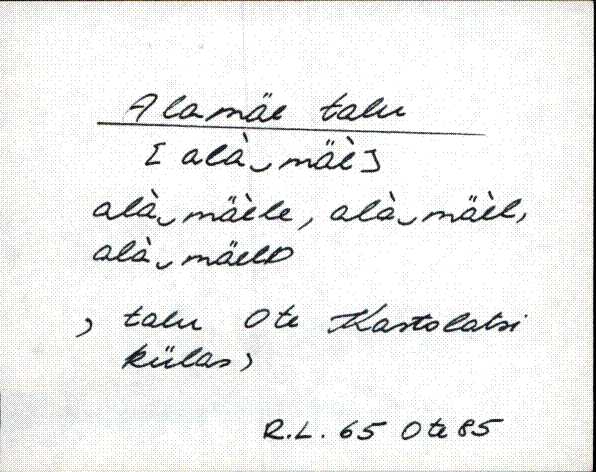 Alamäe talu
[alà‿mäè]
alà‿mäèle, alà‿mäèl,
alà‿mäelD
, talu Ote Kastolatsi
külas,
R.L. 65 Ote 85